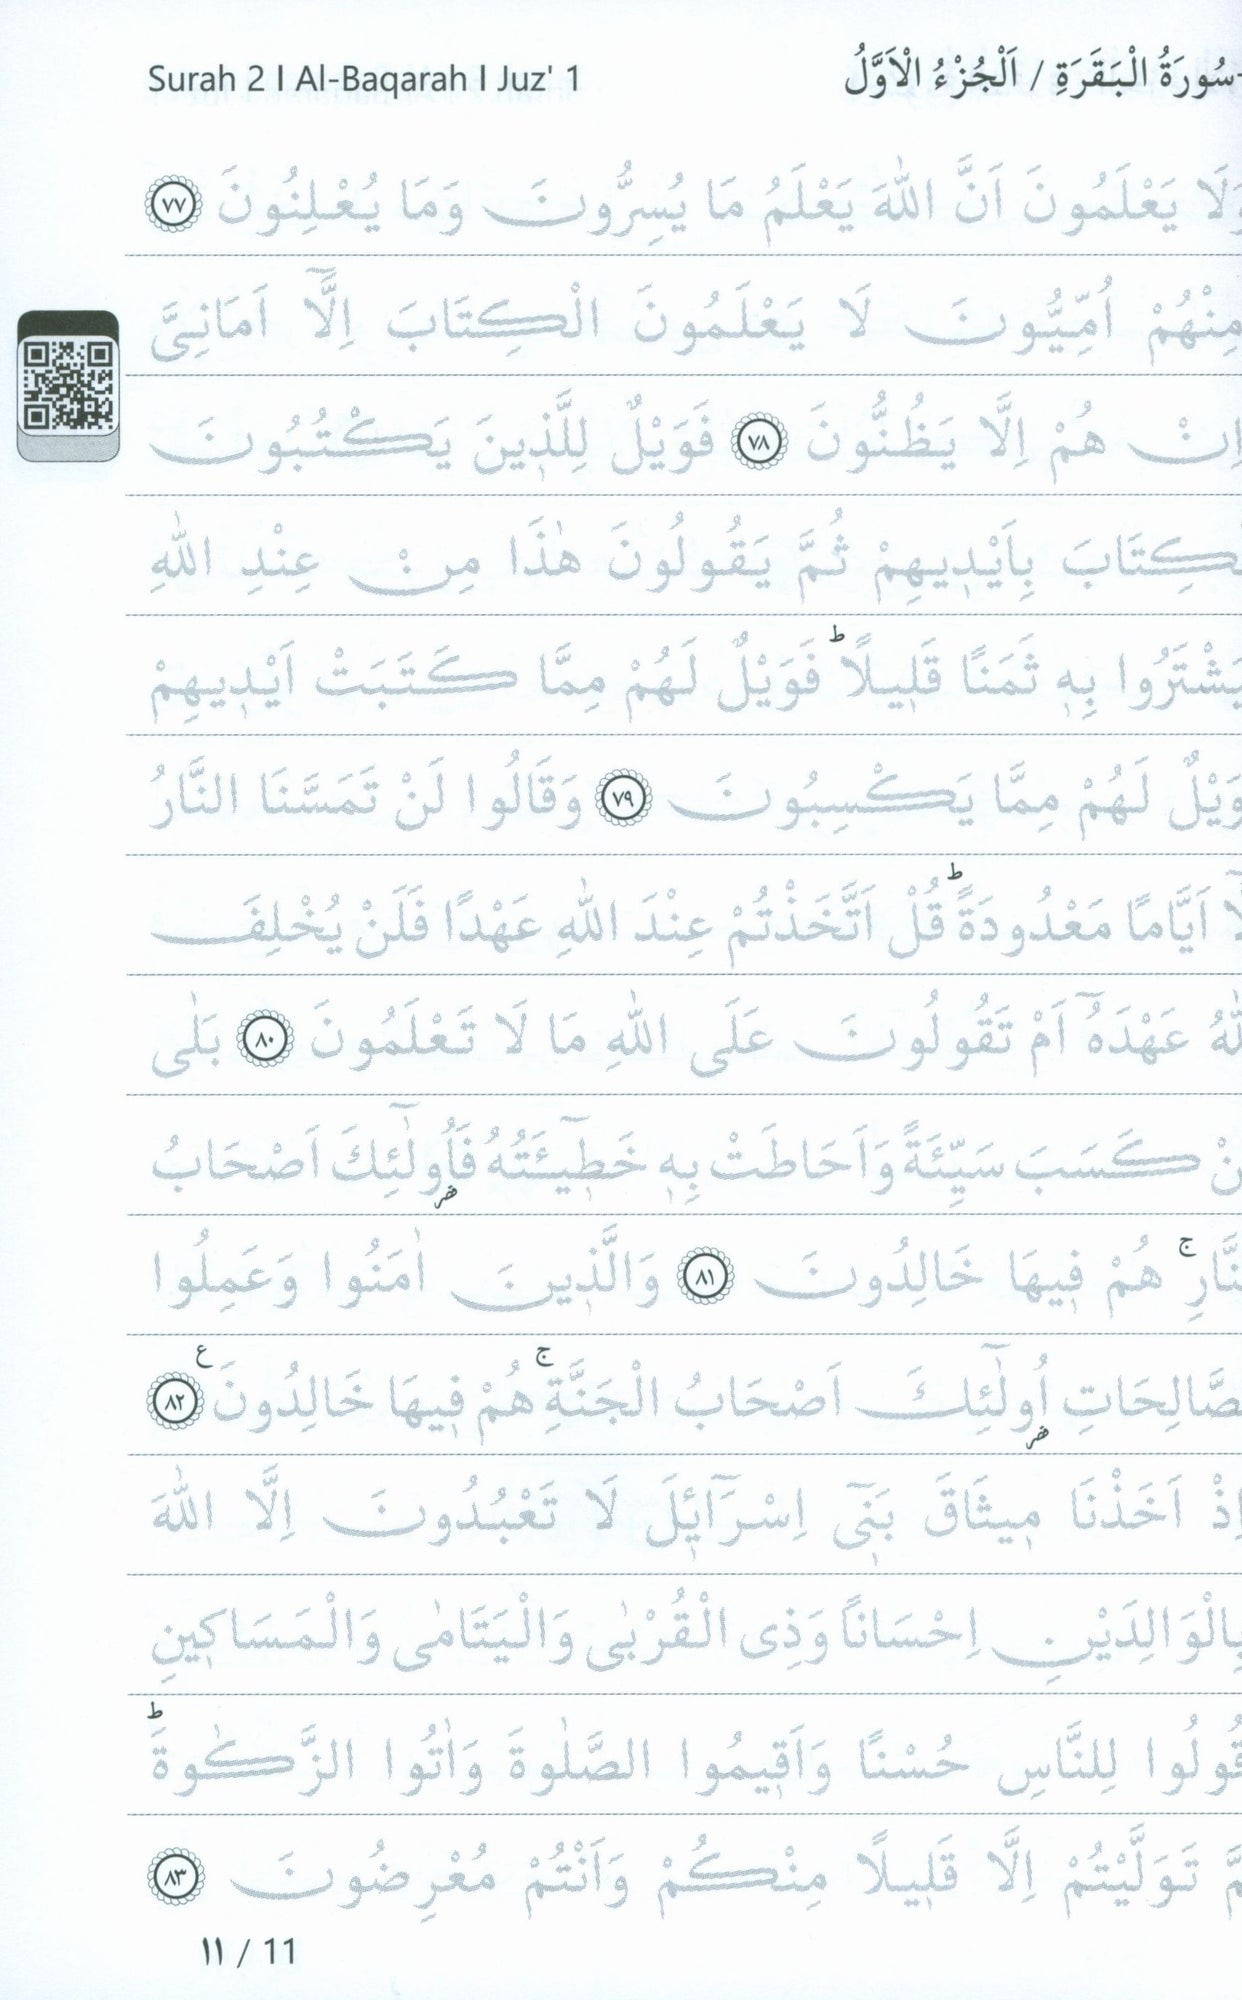 Surah 2 I Al-Baqarah I Juz' 1
سُورَةُ الْبَقَرَةِ / اَلْجُزْءُ الْاَوَّلُ
وَلَا يَعْلَمُونَ اَنَّ اللّٰهَ يَعْلَمُ مَا يُسِرُّونَ وَمَا يُعْلِنُونَ ٧٧
مِنْهُمْ اُمِّيُّونَ لَا يَعْلَمُونَ الْكِتَابَ اِلَّٓا اَمَانِىَّ
اِنْ هُمْ اِلَّا يَظُنُّونَ ٧٨ فَوَيْلٌ لِلَّذٖينَ يَكْتُبُونَ
كِتَابَ بِاَيْدٖيهِمْ ثُمَّ يَقُولُونَ هٰذَا مِنْ عِنْدِ اللّٰهِ
يَشْتَرُوا بِهٖ ثَمَنًا قَلٖيلًاؕ فَوَيْلٌ لَهُمْ مِمَّا كَتَبَتْ اَيْدٖيهِمْ
وَيْلٌ لَهُمْ مِمَّا يَكْسِبُونَ ٧٩ وَقَالُوا لَنْ تَمَسَّنَا النَّارُ
لَّٓا اَيَّامًا مَعْدُودَةًؕ قُلْ اَتَّخَذْتُمْ عِنْدَ اللّٰهِ عَهْدًا فَلَنْ يُخْلِفَ
لّٰهُ عَهْدَهُٓ اَمْ تَقُولُونَ عَلَى اللّٰهِ مَا لَا تَعْلَمُونَ ٨٠ بَلٰى
نْ كَسَبَ سَيِّئَةً وَاَحَاطَتْ بِهٖ خَطٖٓيـَٔتُهُ فَاُولٰٓئِكَ اَصْحَابُ
نَّارِۚ هُمْ فٖيهَا خَالِدُونَ ٨١ وَالَّذٖينَ اٰمَنُوا وَعَمِلُوا
صَّالِحَاتِ اُولٰٓئِكَ اَصْحَابُ الْجَنَّةِۚ هُمْ فٖيهَا خَالِدُونَ ع ٨٢
اِذْ اَخَذْنَا مٖيثَاقَ بَنٖٓى اِسْرَٓائٖلَ لَا تَعْبُدُونَ اِلَّا اللّٰهَ
بِالْوَالِدَيْنِ اِحْسَانًا وَذِى الْقُرْبٰى وَالْيَتَامٰى وَالْمَسَاكٖينِ
قُولُوا لِلنَّاسِ حُسْنًا وَاَقٖيمُوا الصَّلٰوةَ وَاٰتُوا الزَّكٰوةَؕ
مَّ تَوَلَّيْتُمْ اِلَّا قَلٖيلًا مِنْكُمْ وَاَنْتُمْ مُعْرِضُونَ ٨٣
١١ / 11